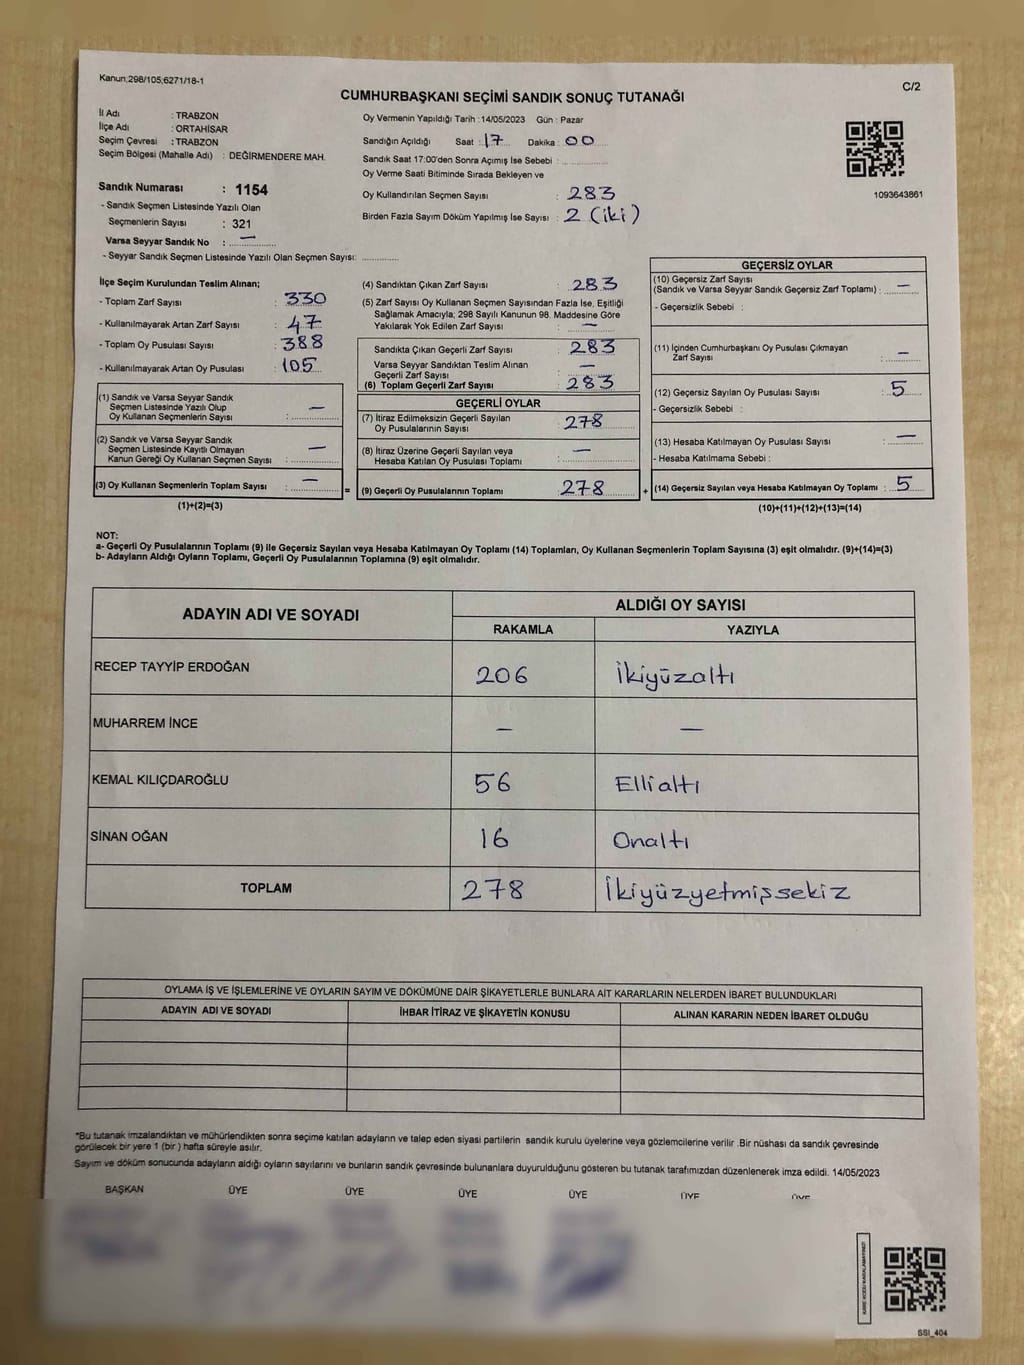 Kanun,298/105;6271/18-1
C/2
CUMHURBAŞKANI SEÇİMİ SANDIK SONUÇ TUTANAĞI
İl Adı : TRABZON
İlçe Adı : ORTAHİSAR
Seçim Çevresi : TRABZON
Seçim Bölgesi (Mahalle Adı) : DEĞİRMENDERE MAH.
Sandık Numarası : 1154
- Sandık Seçmen Listesinde Yazılı Olan
Seçmenlerin Sayısı : 321
Varsa Seyyar Sandık No : —
- Seyyar Sandık Seçmen Listesinde Yazılı Olan Seçmen Sayısı:
Oy Vermenin Yapıldığı Tarih : 14/05/2023 Gün : Pazar
Sandığın Açıldığı Saat : 17 Dakika : 00
Sandık Saat 17:00'den Sonra Açımış İse Sebebi :
Oy Verme Saati Bitiminde Sırada Bekleyen ve
Oy Kullandırılan Seçmen Sayısı : 283
Birden Fazla Sayım Döküm Yapılmış İse Sayısı : 2 (iki)
1093643861
İlçe Seçim Kurulundan Teslim Alınan;
- Toplam Zarf Sayısı : 330
- Kullanılmayarak Artan Zarf Sayısı : 47
- Toplam Oy Pusulası Sayısı : 388
- Kullanılmayarak Artan Oy Pusulası : 105
(1) Sandık ve Varsa Seyyar Sandık
Seçmen Listesinde Yazılı Olup
Oy Kullanan Seçmenlerin Sayısı : —
(2) Sandık ve Varsa Seyyar Sandık
Seçmen Listesinde Kayıtlı Olmayan
Kanun Gereği Oy Kullanan Seçmen Sayısı : —
(3) Oy Kullanan Seçmenlerin Toplam Sayısı : —
(1)+(2)=(3)
=
(4) Sandıktan Çıkan Zarf Sayısı : 283
(5) Zarf Sayısı Oy Kullanan Seçmen Sayısından Fazla İse, Eşitliği
Sağlamak Amacıyla; 298 Sayılı Kanunun 98. Maddesine Göre
Yakılarak Yok Edilen Zarf Sayısı : —
Sandıkta Çıkan Geçerli Zarf Sayısı : 283
Varsa Seyyar Sandıktan Teslim Alınan
Geçerli Zarf Sayısı : —
(6) Toplam Geçerli Zarf Sayısı : 283
GEÇERLİ OYLAR
(7) İtiraz Edilmeksizin Geçerli Sayılan
Oy Pusulalarının Sayısı : 278
(8) İtiraz Üzerine Geçerli Sayılan veya
Hesaba Katılan Oy Pusulası Toplamı : —
(9) Geçerli Oy Pusulalarının Toplamı : 278
+
GEÇERSİZ OYLAR
(10) Geçersiz Zarf Sayısı
(Sandık ve Varsa Seyyar Sandık Geçersiz Zarf Toplamı) : —
- Geçersizlik Sebebi :
(11) İçinden Cumhurbaşkanı Oy Pusulası Çıkmayan
Zarf Sayısı : —
(12) Geçersiz Sayılan Oy Pusulası Sayısı : 5
- Geçersizlik Sebebi :
(13) Hesaba Katılmayan Oy Pusulası Sayısı : —
- Hesaba Katılmama Sebebi :
(14) Geçersiz Sayılan veya Hesaba Katılmayan Oy Toplamı : 5
(10)+(11)+(12)+(13)=(14)
NOT:
a- Geçerli Oy Pusulalarının Toplamı (9) ile Geçersiz Sayılan veya Hesaba Katılmayan Oy Toplamı (14) Toplamları, Oy Kullanan Seçmenlerin Toplam Sayısına (3) eşit olmalıdır. (9)+(14)=(3)
b- Adayların Aldığı Oyların Toplamı, Geçerli Oy Pusulalarının Toplamına (9) eşit olmalıdır.
ADAYIN ADI VE SOYADI
ALDIĞI OY SAYISI
RAKAMLA YAZIYLA
RECEP TAYYİP ERDOĞAN 206 İkiyüzaltı
MUHARREM İNCE — —
KEMAL KILIÇDAROĞLU 56 Ellialtı
SİNAN OĞAN 16 Onaltı
TOPLAM 278 İkiyüzyetmişsekiz
OYLAMA İŞ VE İŞLEMLERİNE VE OYLARIN SAYIM VE DÖKÜMÜNE DAİR ŞİKAYETLERLE BUNLARA AİT KARARLARIN NELERDEN İBARET BULUNDUKLARI
ADAYIN ADI VE SOYADI İHBAR İTİRAZ VE ŞİKAYETİN KONUSU ALINAN KARARIN NEDEN İBARET OLDUĞU
*Bu tutanak imzalandıktan ve mühürlendikten sonra seçime katılan adayların ve talep eden siyasi partilerin sandık kurulu üyelerine veya gözlemcilerine verilir .Bir nüshası da sandık çevresinde
görülecek bir yere 1 (bir) hafta süreyle asılır.
Sayım ve döküm sonucunda adayların aldığı oyların sayılarını ve bunların sandık çevresinde bulunanlara duyurulduğunu gösteren bu tutanak tarafımızdan düzenlenerek imza edildi. 14/05/2023
BAŞKAN ÜYE ÜYE ÜYE ÜYE ÜYE ÜYE
SSI_404